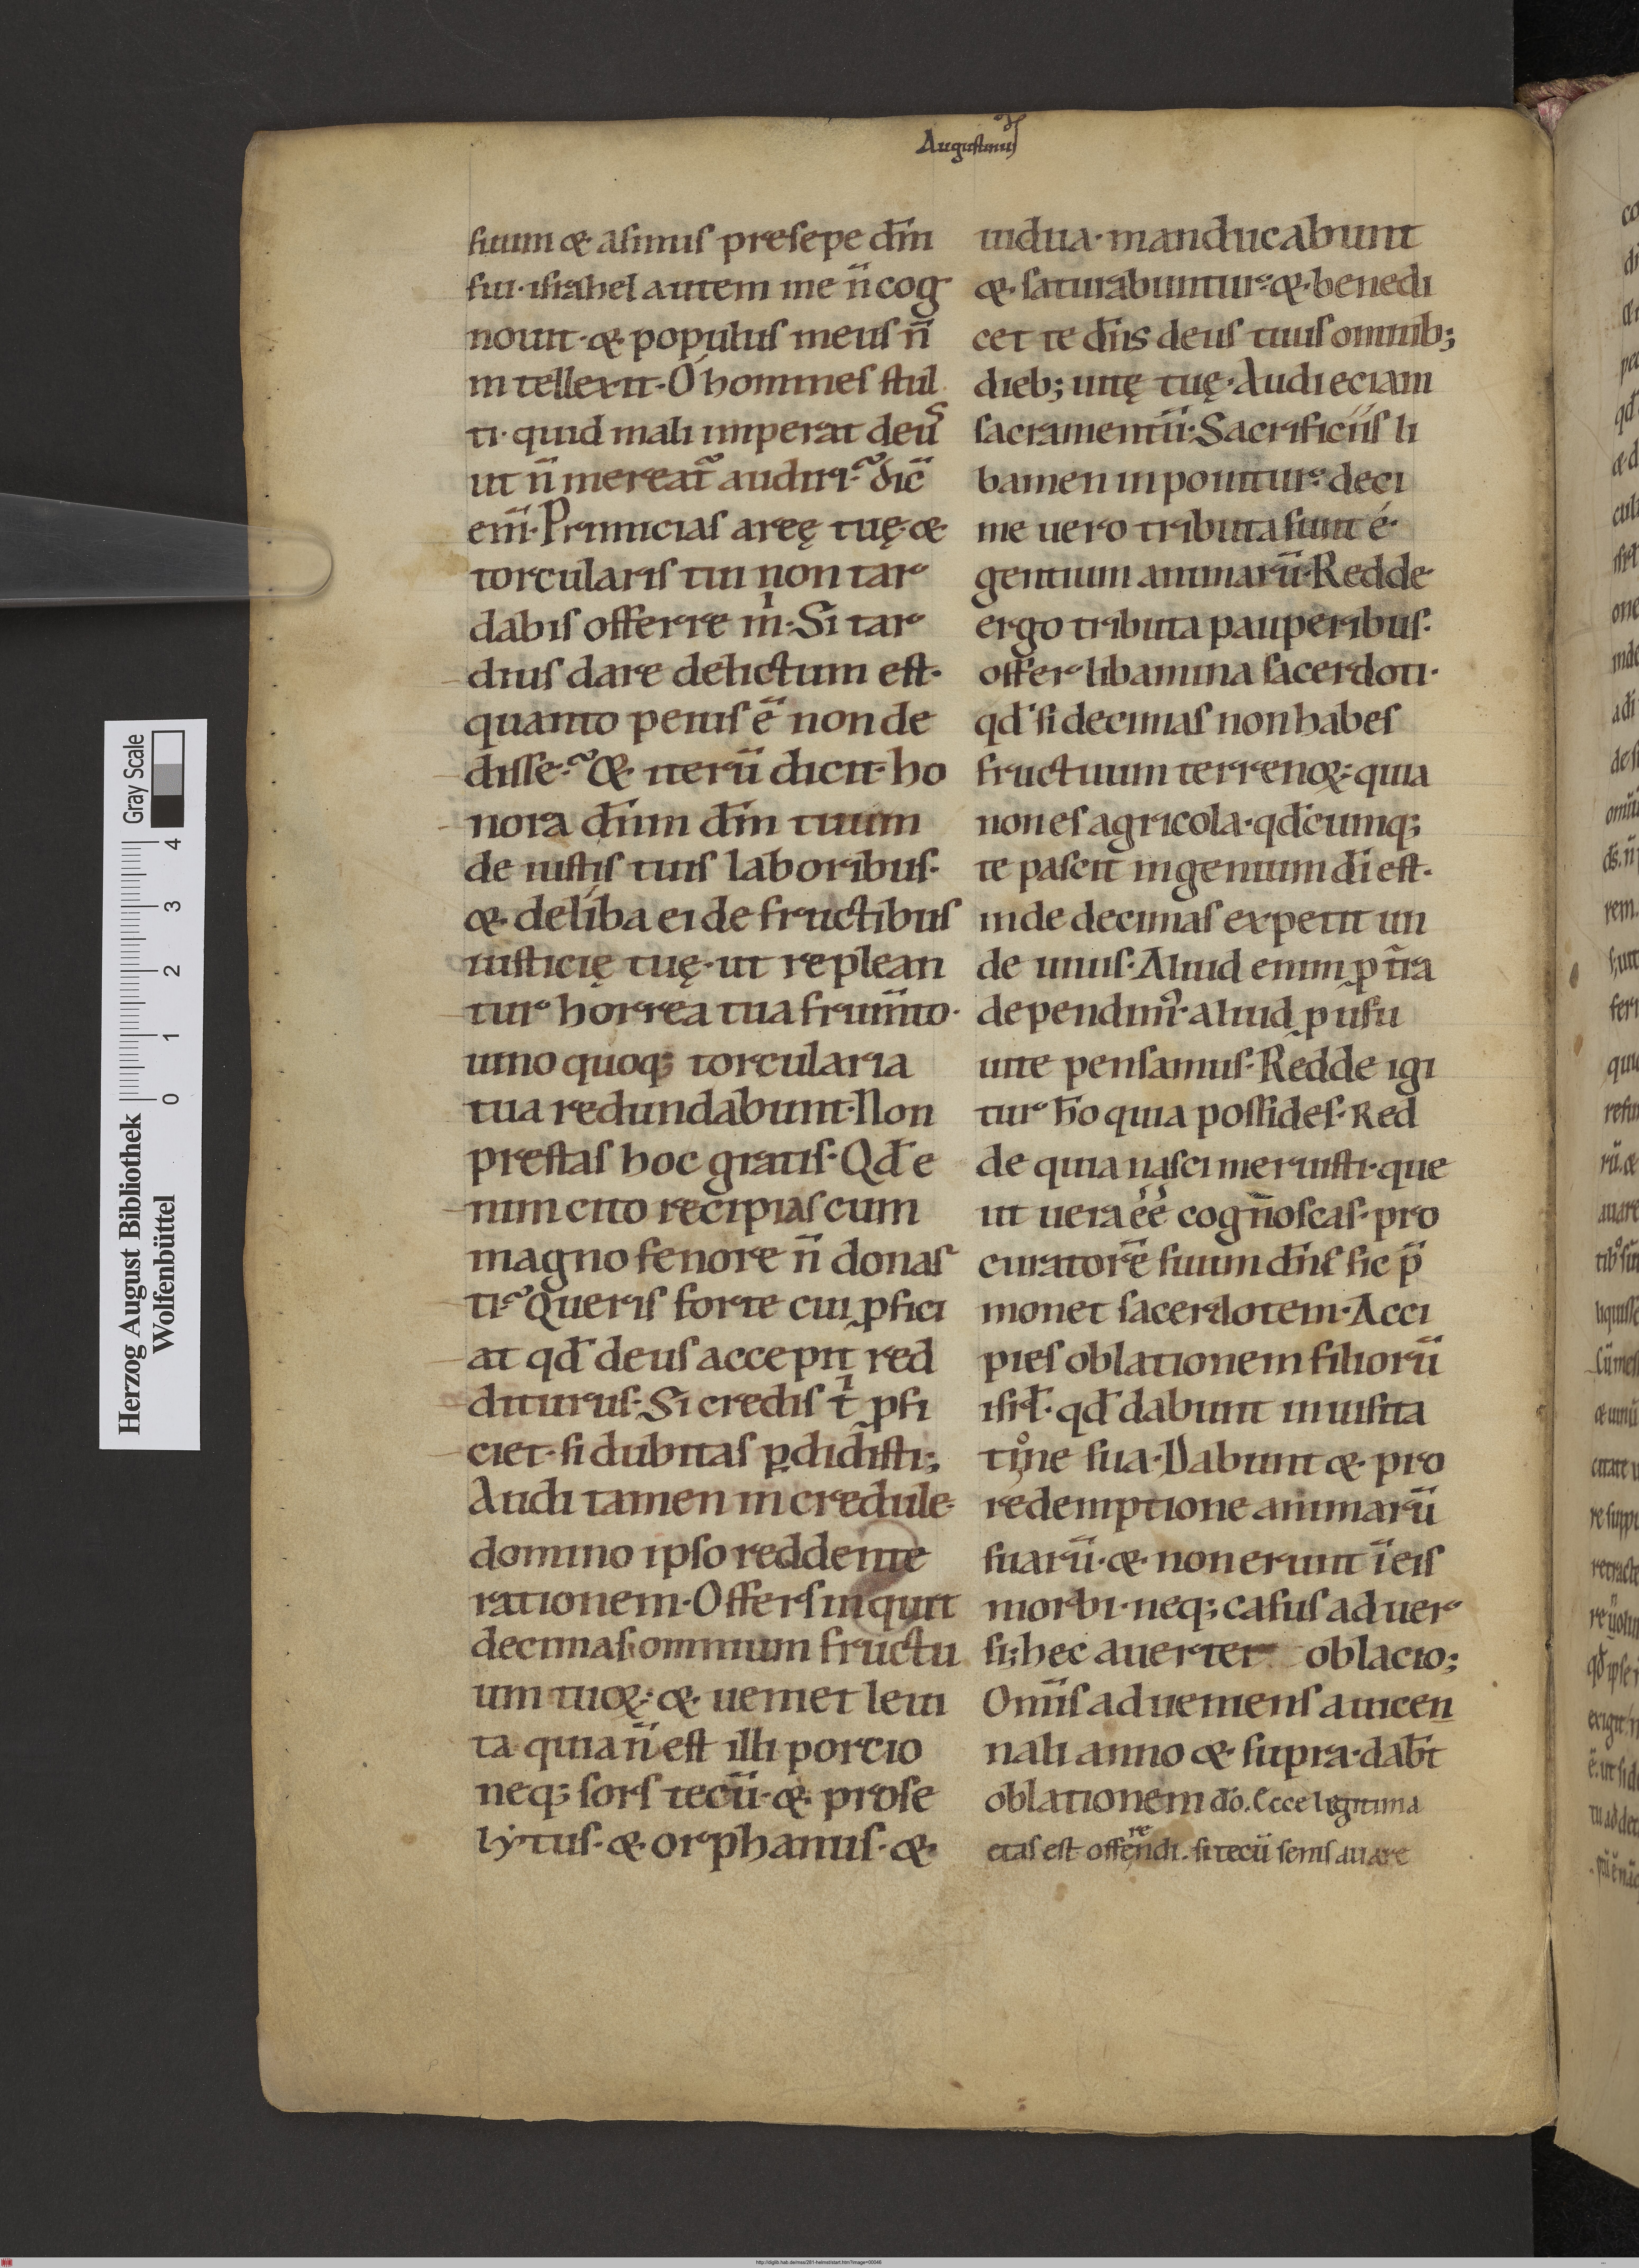 Augustinus
suum & asinus presepe dn̄i
sui· israhel autem me n̄ cog
nouit· & populus meus n̄
intellexit· O homines stul
ti· quid mali imperat deus
ut n̄ mereat᷑ audiri· dic̄
eni̅· Primicias areę tuę· &
torcularis tui non tar
dabis offerre m̄i· Si tar
dius dare delictum est·
quanto peius ē non de
disse· &· iterū dicit· ho
nora dn̄um dm̄ tuum
de iustis tuis laboribus·
&· deliba ei de fructibus
iusticię tuę· ut replean
tur horrea tua frum̄to·
uino quoq; torcularia
tua redundabunt· Non
prestas hoc gratis· Qd̄ e
nim cito recipias cum
magno fenore n̄ donas
ti· Queris forte cui ꝓfici
at qd̄ deus accepit red
diturus· Si credis ti ꝓfi
ciet· si dubitas ꝑdidisti;
Audi tamen incredule·
domino ipso reddente
rationem· Offers inquit
decimas omnium fructu
um tuoꝝ· &· ueniet leui
ta quia n̄ est illi porcio
neq; sors tecū· &· prose
lytus· &· orphanus· &·
uidua· manducabunt
&· saturabuntur· &· benedi
cet te dn̄s deus tuus omnib;
dieb; uitę tuę· Audi eciam
sacramentū· Sacrificiis li
bamen inponitur· deci
me uero tributa sunt é·
gentium animarū· Redde
ergo tributa pauperibus·
offer libamina sacerdoti·
qd̄ si decimas non habes
fructuum terrenoꝝ· quia
non es agricola· qd̄cumq;
te pascit ingenium di̅ est·
inde decimas expetit un
de uiuis· Aliud enim ꝓ t̄ra
dependim᷒· aliud ꝓ usu
uite pensamus· Redde igi
tur ho̅ quia possides· Red
de quia nasci meruisti· que
ut uera éé cognoscas· pro
curatorē suum dn̄s sic p̄
monet sacerdotem· Acci
pies oblationem filiorū
isrl̄· qd̄ dabunt in uisita
tione sua· Dabunt &· pro
redemptione animarū
suarū· &· non erunt ī eis
morbi· neq; casus aduer
si; hec auertet oblacio;
Om̄is adueniens a uicen
nali anno &· supra· dab̅t
oblationem do̅. Ecce legitima
etas est offerendi. si tecū senis auare
Herzog August Bibliothek
Wolfenbüttel
0 1 2 3 4
Gray Scale
http://diglib.hab.de/mss/281-helmst/start.htm?image=00046